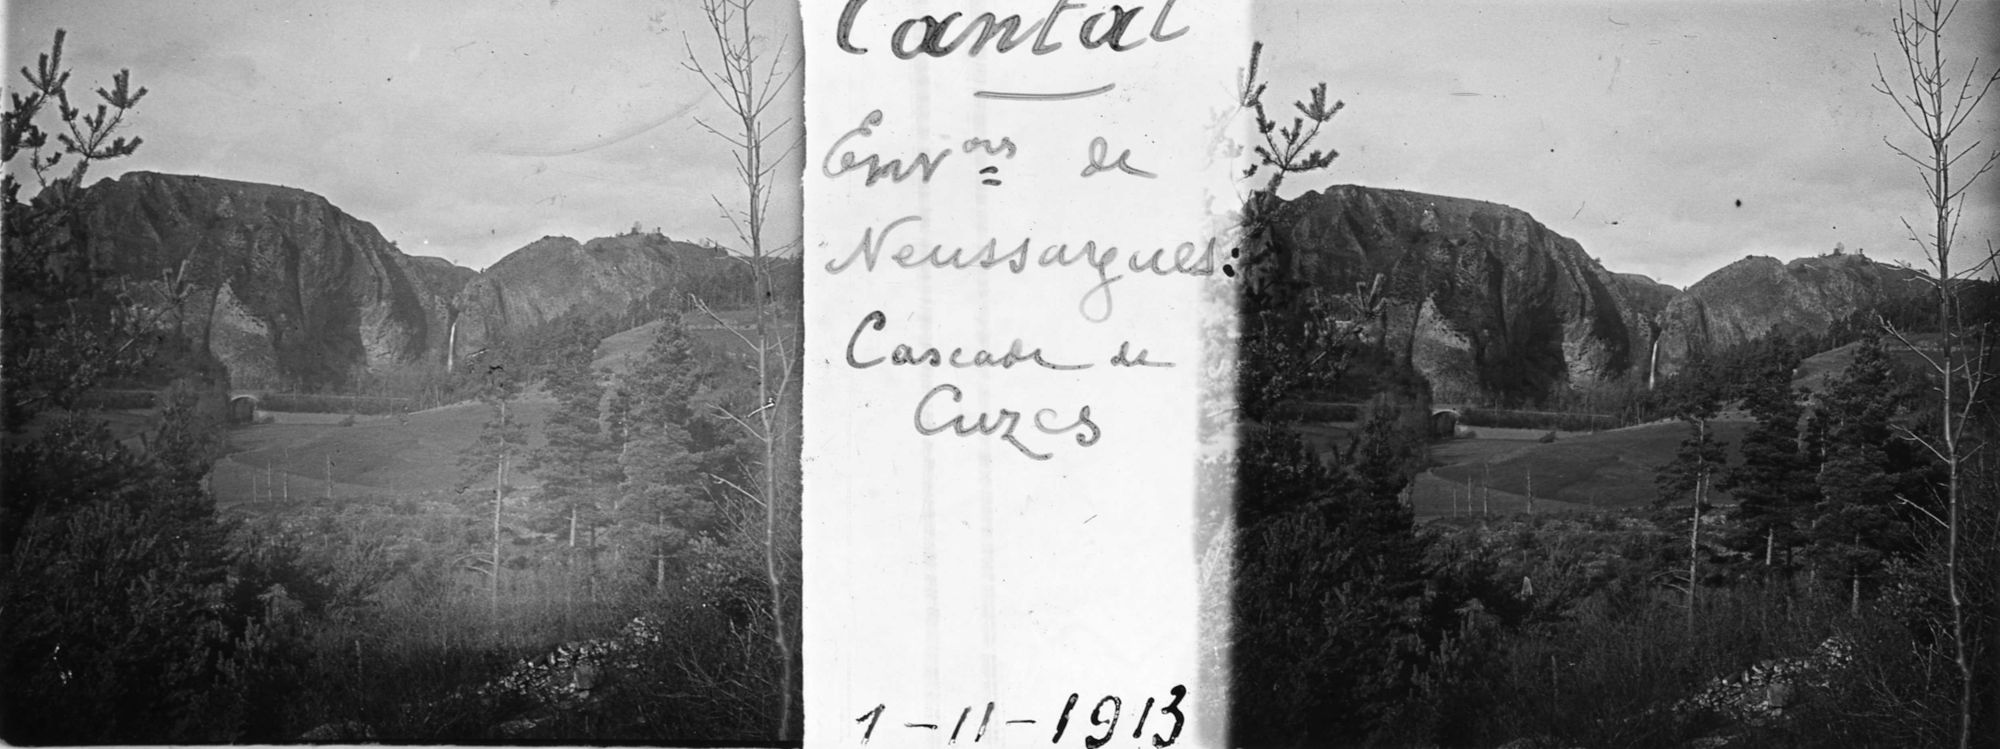 Cantal
Envons de
Neussargues:
Cascade de
Cuzes
1-11-1913